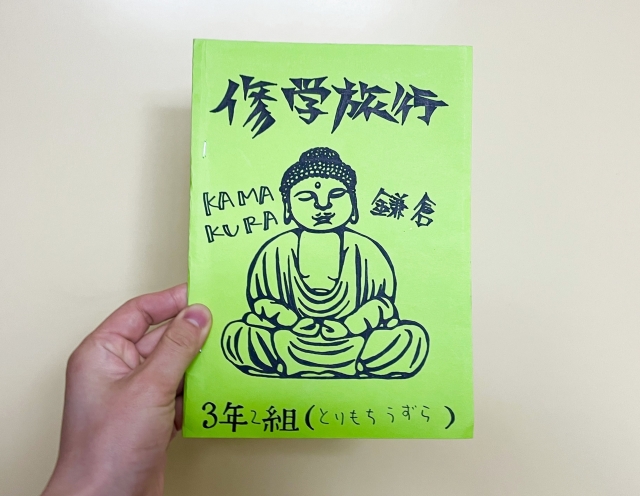 修学旅行
KAMA
KURA
鎌倉
3年2組(とりもちうずら)